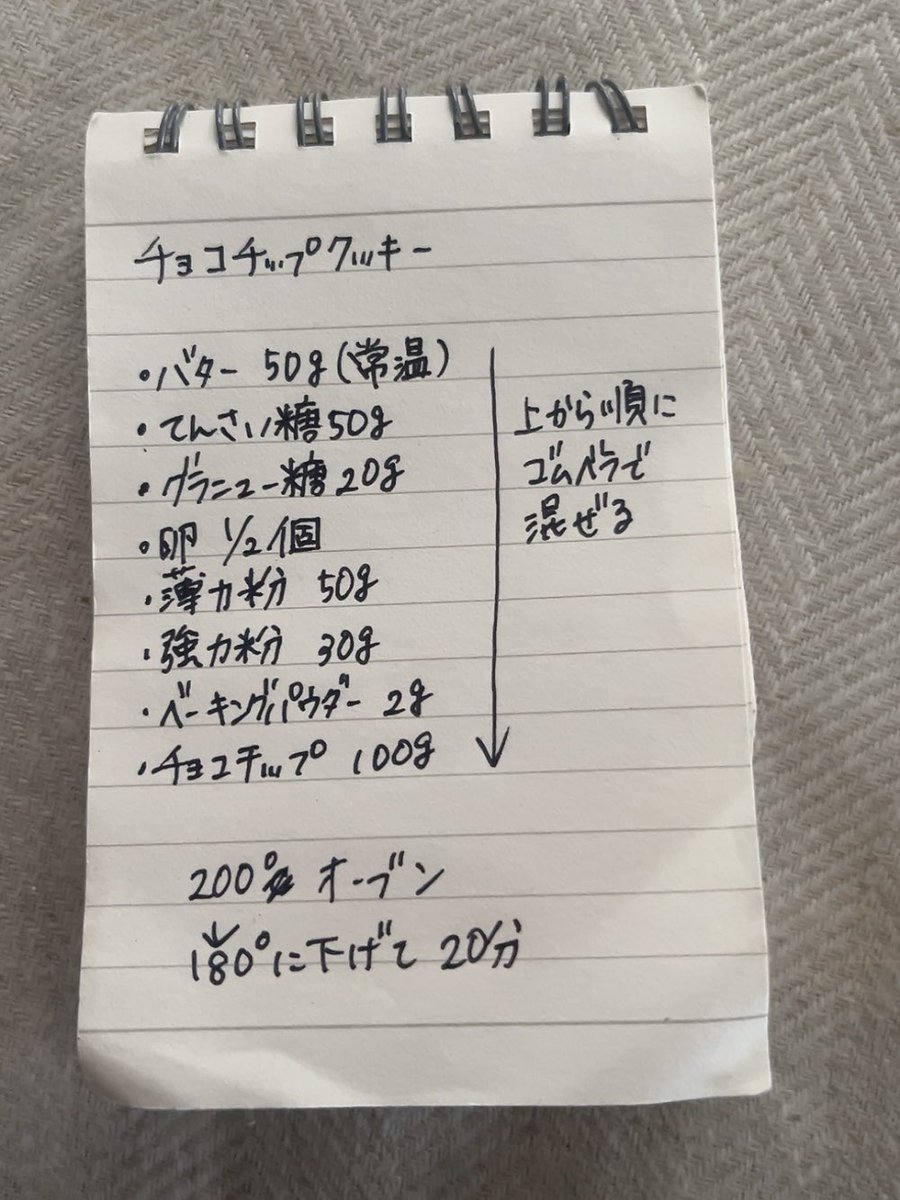 チョコチップクッキー
・バター 50g(常温)
・てんさい糖50g
・グラニュー糖 20g
・卵 1/2個
・薄力粉 50g
・強力粉 30g
・ベーキングパウダー 2g
・チョコチップ 100g
上から順に
ゴムベラで
混ぜる
200° オーブン
↓
180°に下げて 20分